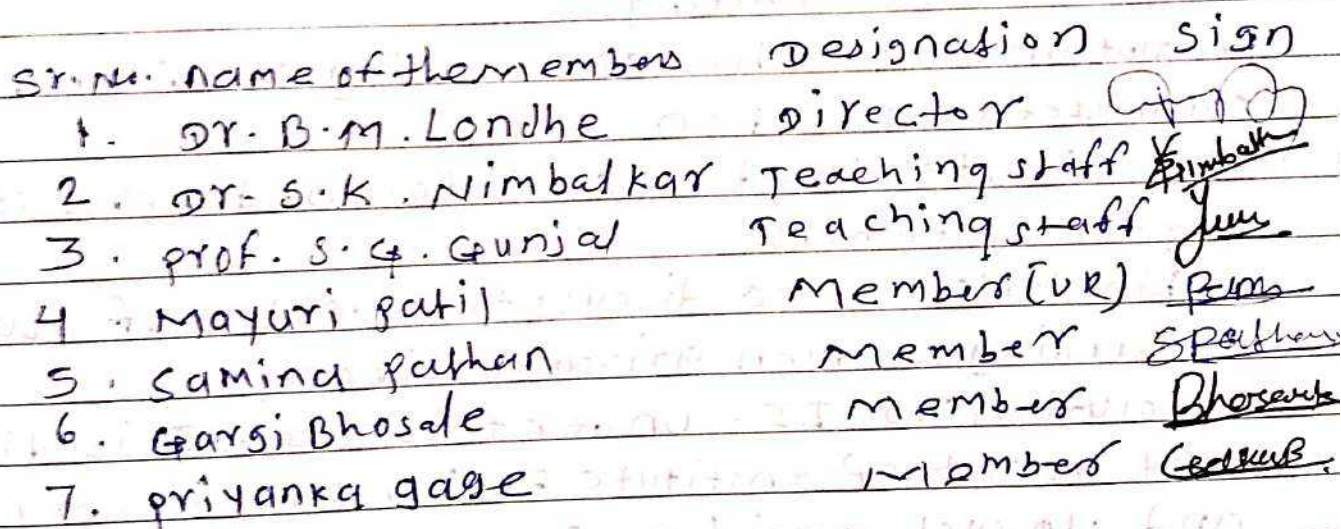 Sr. No. name of the members Designation Sign
1. Dr. B.M. Londhe Director
2. Dr. S.K. Nimbalkar Teaching staff
3. prof. S.G. Gunjal Teaching staff
4 Mayuri patil Member (UR)
5. Samina pathan Member SPathan
6. Gargi Bhosale Member
7. priyanka gage Member